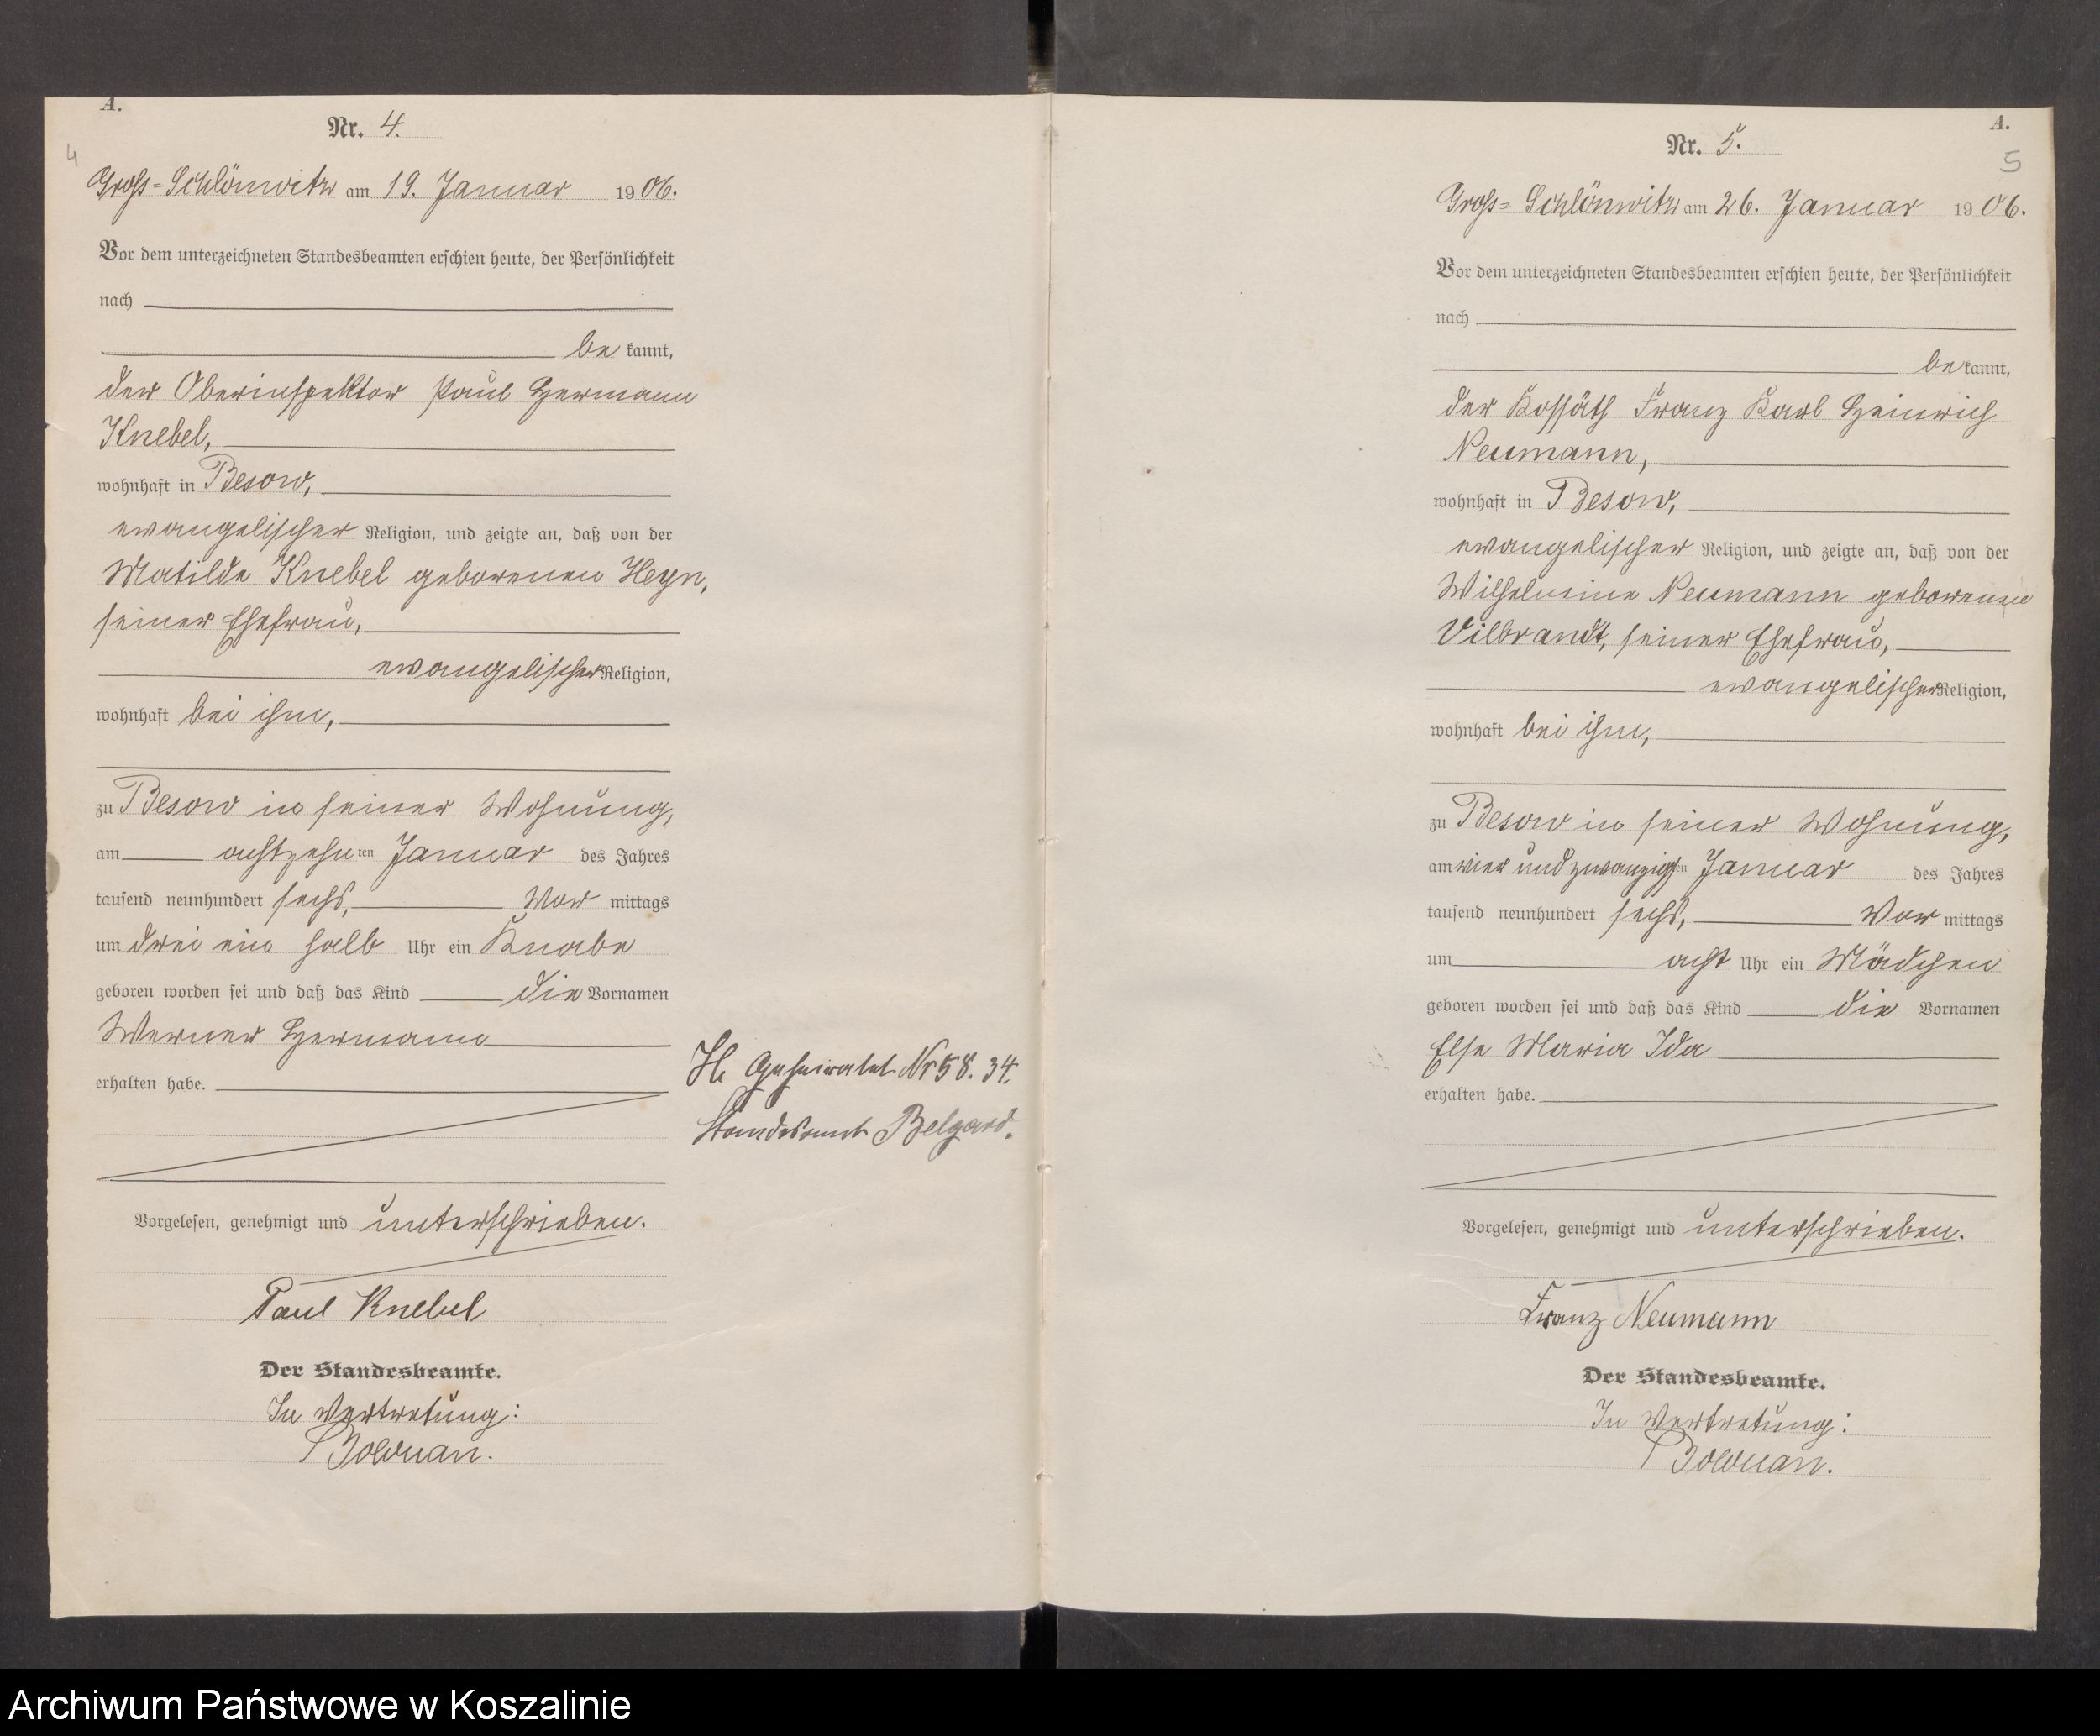 A.
Nr. 4.
4
Gross-Schlönwitz am 19. Januar 1906.
Vor dem unterzeichneten Standesbeamten erschien heute, der Persönlichkeit
nach
be kannt,
der Oberinspektor Paul Hermann
Knebel,
wohnhaft in Besow,
evangelischer Religion, und zeigte an, daß von der
Matilde Knebel geborenen Heyn,
seiner Ehefrau,
evangelischer Religion,
wohnhaft bei ihm,
zu Besow in seiner Wohnung,
am achtzehn ten Januar des Jahres
tausend neunhundert sechs, Vor mittags
um drei ein halb Uhr ein Knabe
geboren worden sei und daß das Kind die Vornamen
Werner Hermann
erhalten habe.
H. Geheiratet Nr 58. 34.
Standesamt Belgard.
Vorgelesen, genehmigt und unterschrieben.
Paul Knebel
Der Standesbeamte.
In Vertretung:
Bolduan.
A.
Nr. 5.
5
Gross-Schlönwitz am 26. Januar 1906.
Vor dem unterzeichneten Standesbeamten erschien heute, der Persönlichkeit
nach
be kannt,
der Kossäth Franz Karl Heinrich
Neumann,
wohnhaft in Besow,
evangelischer Religion, und zeigte an, daß von der
Wilhelmine Neumann geborenen
Vilbrandt, seiner Ehefrau,
evangelischer Religion,
wohnhaft bei ihm,
zu Besow in seiner Wohnung,
am vier und zwanzigsten Januar des Jahres
tausend neunhundert sechs, Vor mittags
um acht Uhr ein Mädchen
geboren worden sei und daß das Kind die Vornamen
Else Maria Ida
erhalten habe.
Vorgelesen, genehmigt und unterschrieben.
Franz Neumann
Der Standesbeamte.
In Vertretung:
Bolduan.
Archiwum Państwowe w Koszalinie